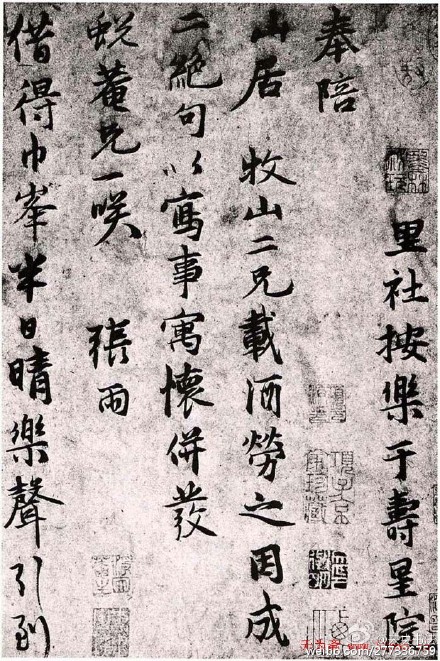 里社按樂于壽星院
奉陪
山居 牧山二兄載酒勞之因成
二絕句以寫事寓懷併發
蛻菴兄一咲 張雨
借得巾峯半日晴樂聲引到
weibo.com/277336759